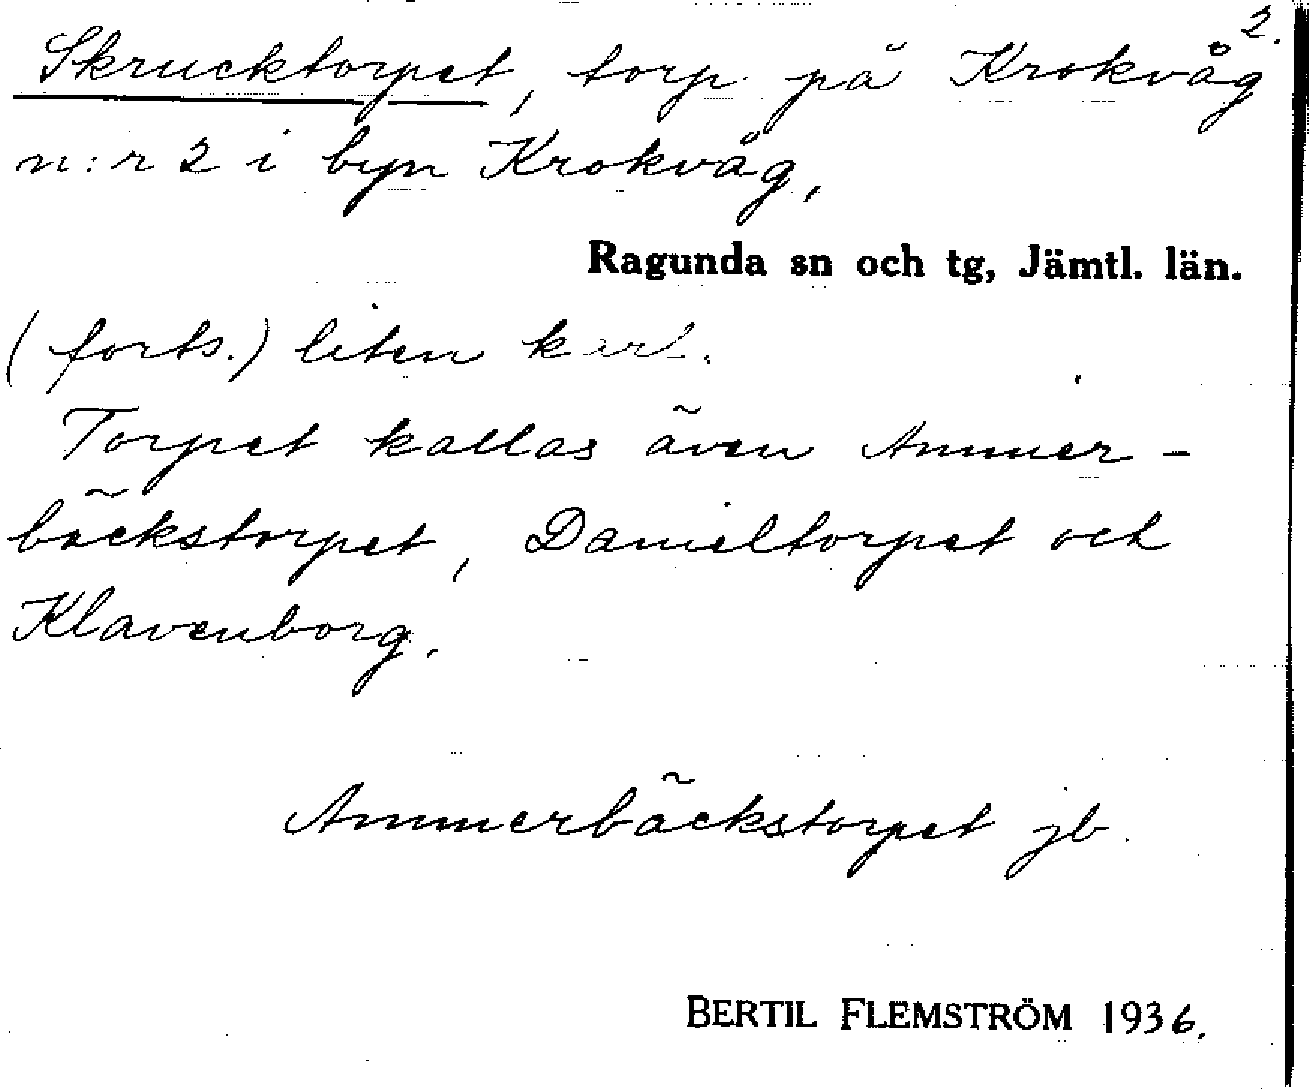 2.
Skrucktorpet, torp på Krokvåg
n:r 2 i byn Krokvåg,
Ragunda sn och tg, Jämtl. län.
(forts.) liten karl.
Torpet kallas även Ammer-
bäckstorpet, Danieltorpet och
Klavenborg.
Ammerbäckstorpet jb.
BERTIL FLEMSTRÖM 1936.